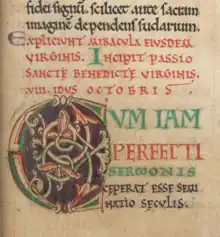 fidei signū. scilicet ante sacram
imaginē dependens sudarium.
EXPLICIUNT MIRACULA EIUSDEM
VIRGINIS. INCIPIT PASSIO
SANCTĘ BENEDICTĘ VIRGINIS.
VIII. IDUS OCTOBRIS.
CUM IAM
PERFECTI
SERMONIS
CEPERAT ESSE SEMI
NATIO SECULIS.